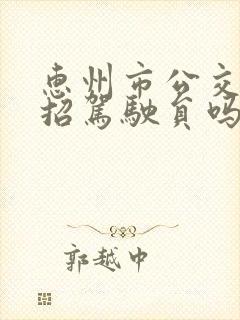 惠州市公交
招駕駛員嗎
郭越中